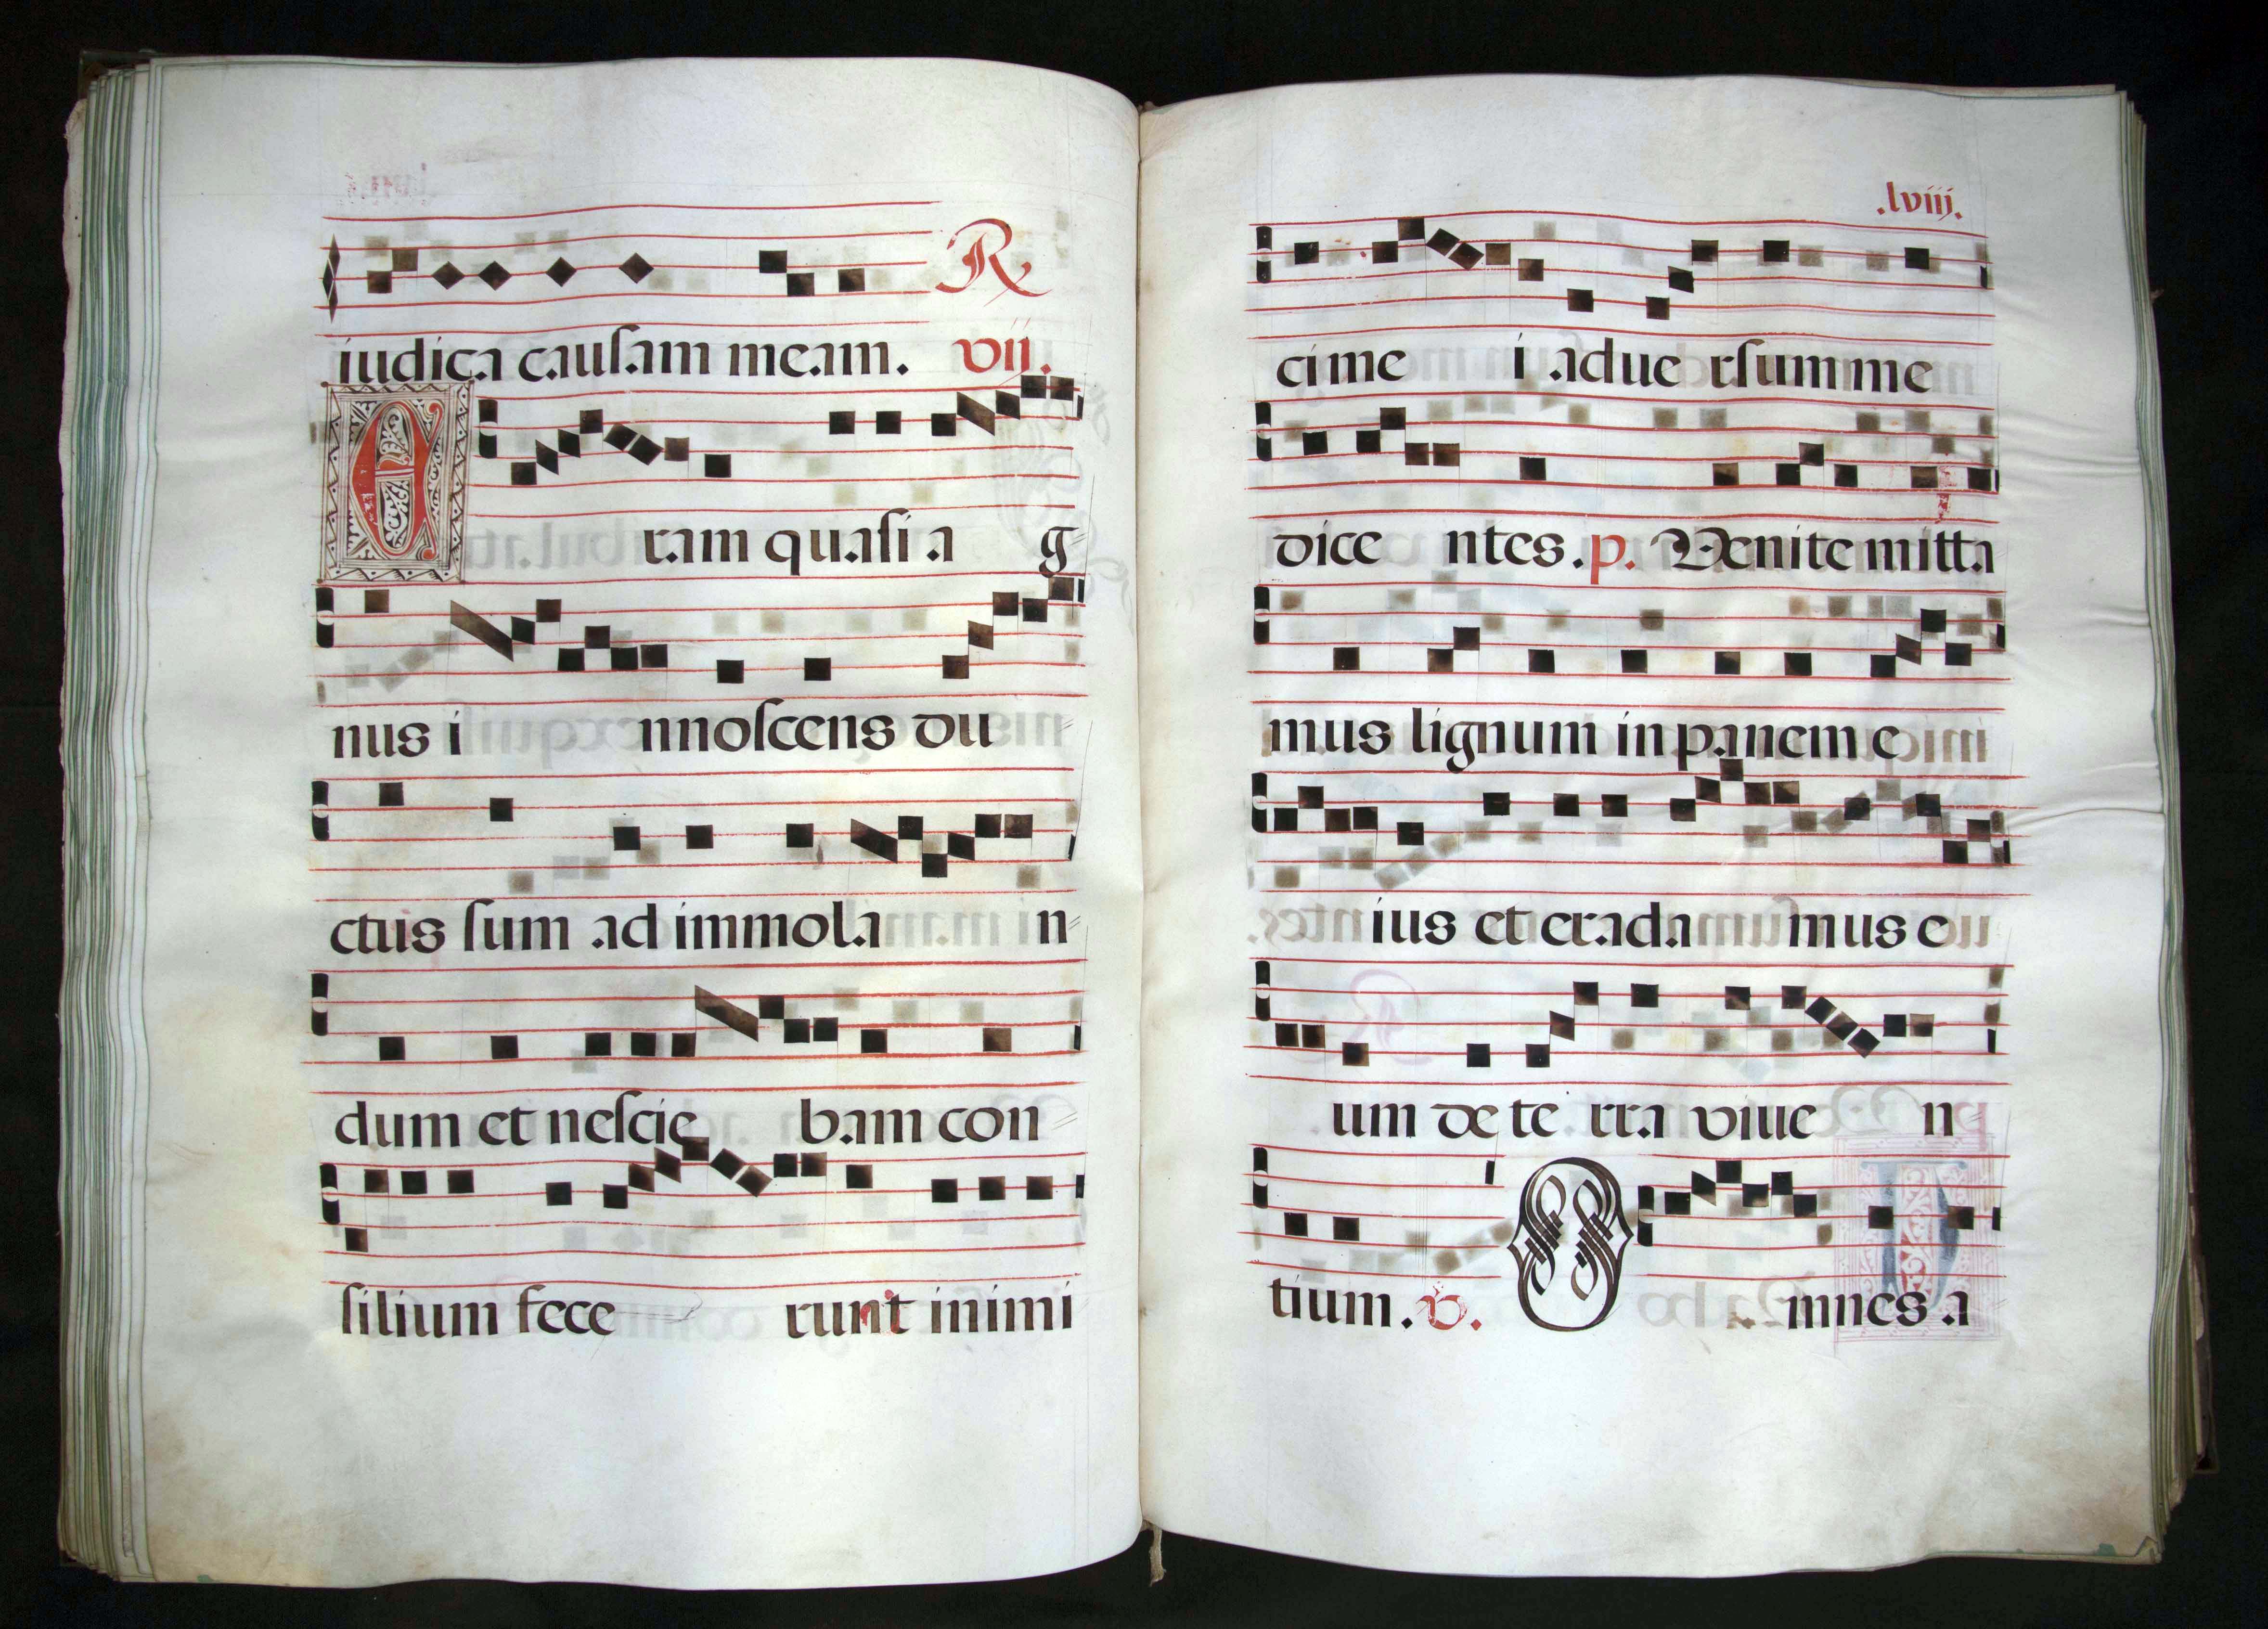 R
iudica causam meam. vii.
Eram quasi a g
nus i nnoscens du
ctus sum ad immola n
dum et nescie bam con
silium fece runt inimi
.lviij.
ci me i adue rsum me
dice ntes. p. Venite mitta
mus lignum in panem e
ius et erada mus e
um de te rra viue n
tium. v. Omnes a